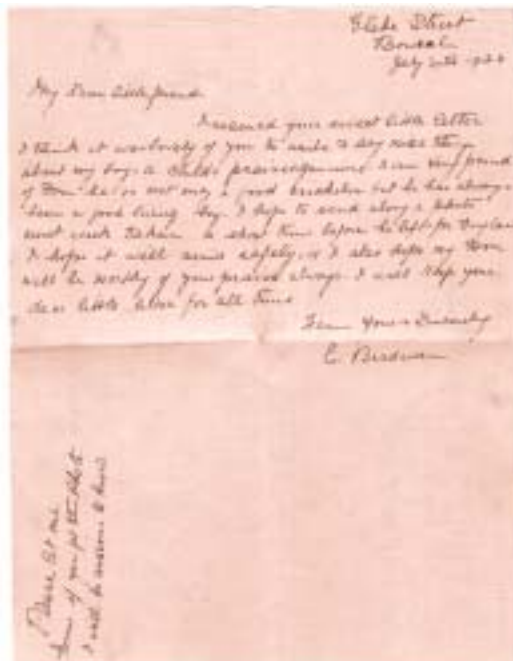 Glebe Street
Bowral
July 20th 19
My Dear little friend
I received your sweet little letter
I think it was lovely of you to write & say nice things
about my boy. a child's praise I am very proud
of Don he is not only a good but he has always
been a good living boy. I hope to send along a photo
next week taken a short time before he left for England
I hope it will arrive safely, & I also hope my Don
will be worthy of your praise always. I will keep your
dear little for all time
Yours Sincerely
E. Bradman
Please let me
know if you get the photo
I will be anxious to know